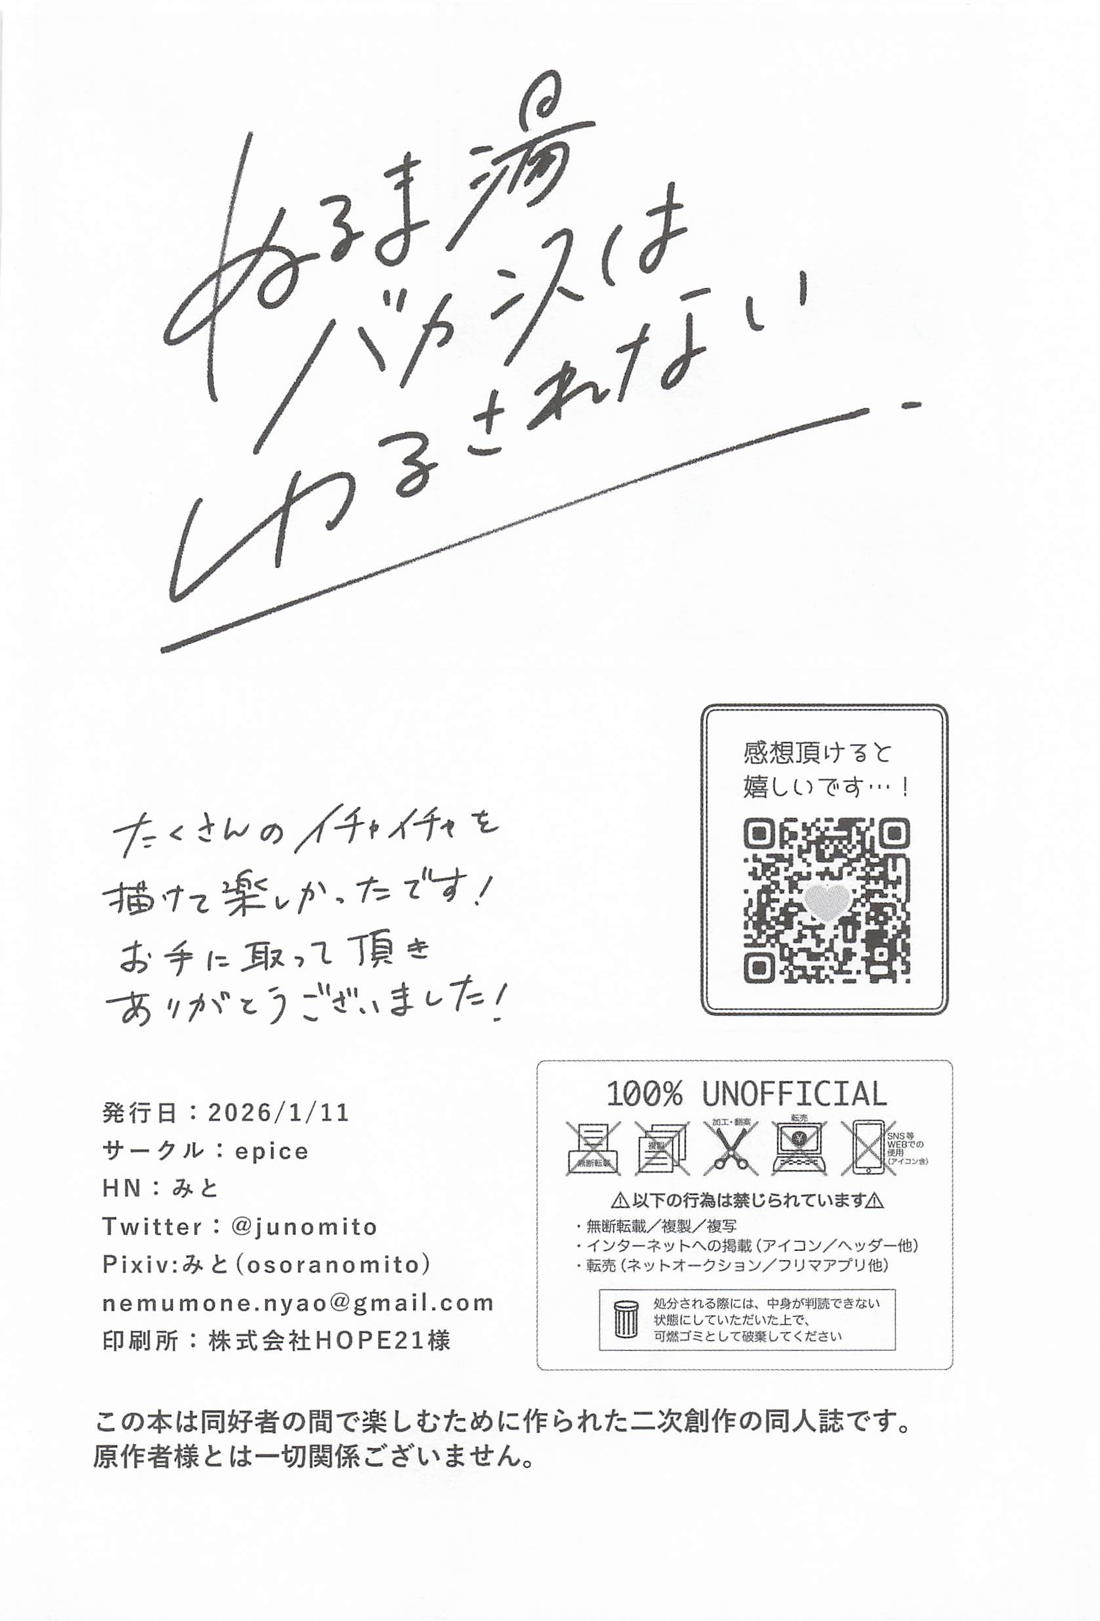 ぬるま湯
バカンスは
ゆるされない
感想頂けると
嬉しいです…！
たくさんのイチャイチャを
描けて楽しかったです！
お手に取って頂き
ありがとうございました！
発行日：2026/1/11
サークル：epice
HN：みと
Twitter：@junomito
Pixiv:みと(osoranomito)
nemumone.nyao@gmail.com
印刷所：株式会社HOPE21様
100% UNOFFICIAL
無断転載
複製
加工・翻案
転売
SNS等
WEBでの
使用
(アイコン含)
⚠以下の行為は禁じられています⚠
・無断転載／複製／複写
・インターネットへの掲載（アイコン／ヘッダー他）
・転売（ネットオークション／フリマアプリ他）
処分される際には、中身が判読できない
状態にしていただいた上で、
可燃ゴミとして破棄してください
この本は同好者の間で楽しむために作られた二次創作の同人誌です。
原作者様とは一切関係ございません。